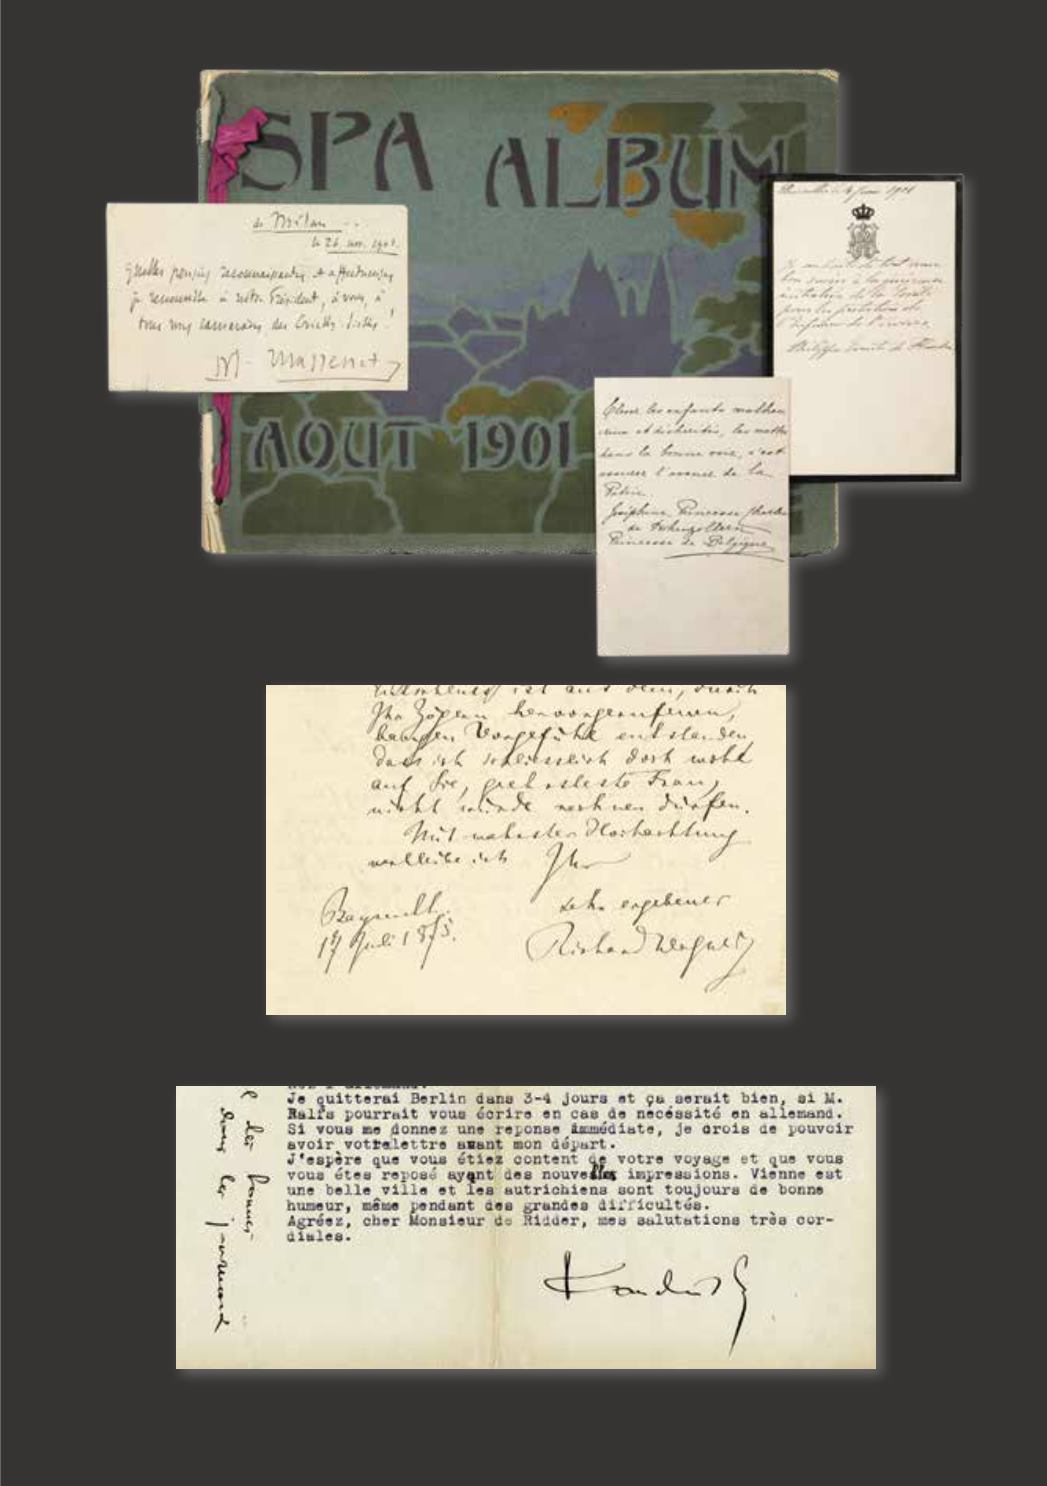 SPA ALBUM
AOUT 1901
de Milan
le 26 nov. 1901.
quelles pensées reconnaissantes et affectueuses
je renouvelle à notre Président, à vous, à
tous nos camarades des
M. Massenet
Bruxelles le 4 1901
Je souhaite de tout mon
bon succès à la généreuse
initiative de la Société
pour la protection de
l'Enfance
Philippe Comte de Flandre
Elever les enfants malheu
reux et déshérités, les mettre
dans la bonne voie, c'est
assurer l'avenir de la
Patrie.
Joséphine Princesse Charles
de Hohenzollern
Princesse de Belgique
ist aus dem, durch
Ihr Zögern hervorgerufenen,
bangen Vorgefühl entstanden,
dass ich schliesslich doch wohl
auf Sie, geehrteste Frau,
nicht würde rechnen dürfen.
Mit wahrster Hochachtung
verbleibe ich Ihr
sehr ergebener
Richard Wagner
Bayreuth.
17 Juli 1875.
Je quitterai Berlin dans 3-4 jours et ça serait bien, si M.
Ralfs pourrait vous écrire en cas de necéssité en allemand.
Si vous me donnez une reponse immédiate, je crois de pouvoir
avoir votre lettre avant mon départ.
J'espère que vous étiez content de votre voyage et que vous
vous étes reposé ayant des nouvelles impressions. Vienne est
une belle ville et les autrichiens sont toujours de bonne
humeur, même pendant des grandes difficultés.
Agréez, cher Monsieur de Ridder, mes salutations très cor-
diales.
Kandinsky